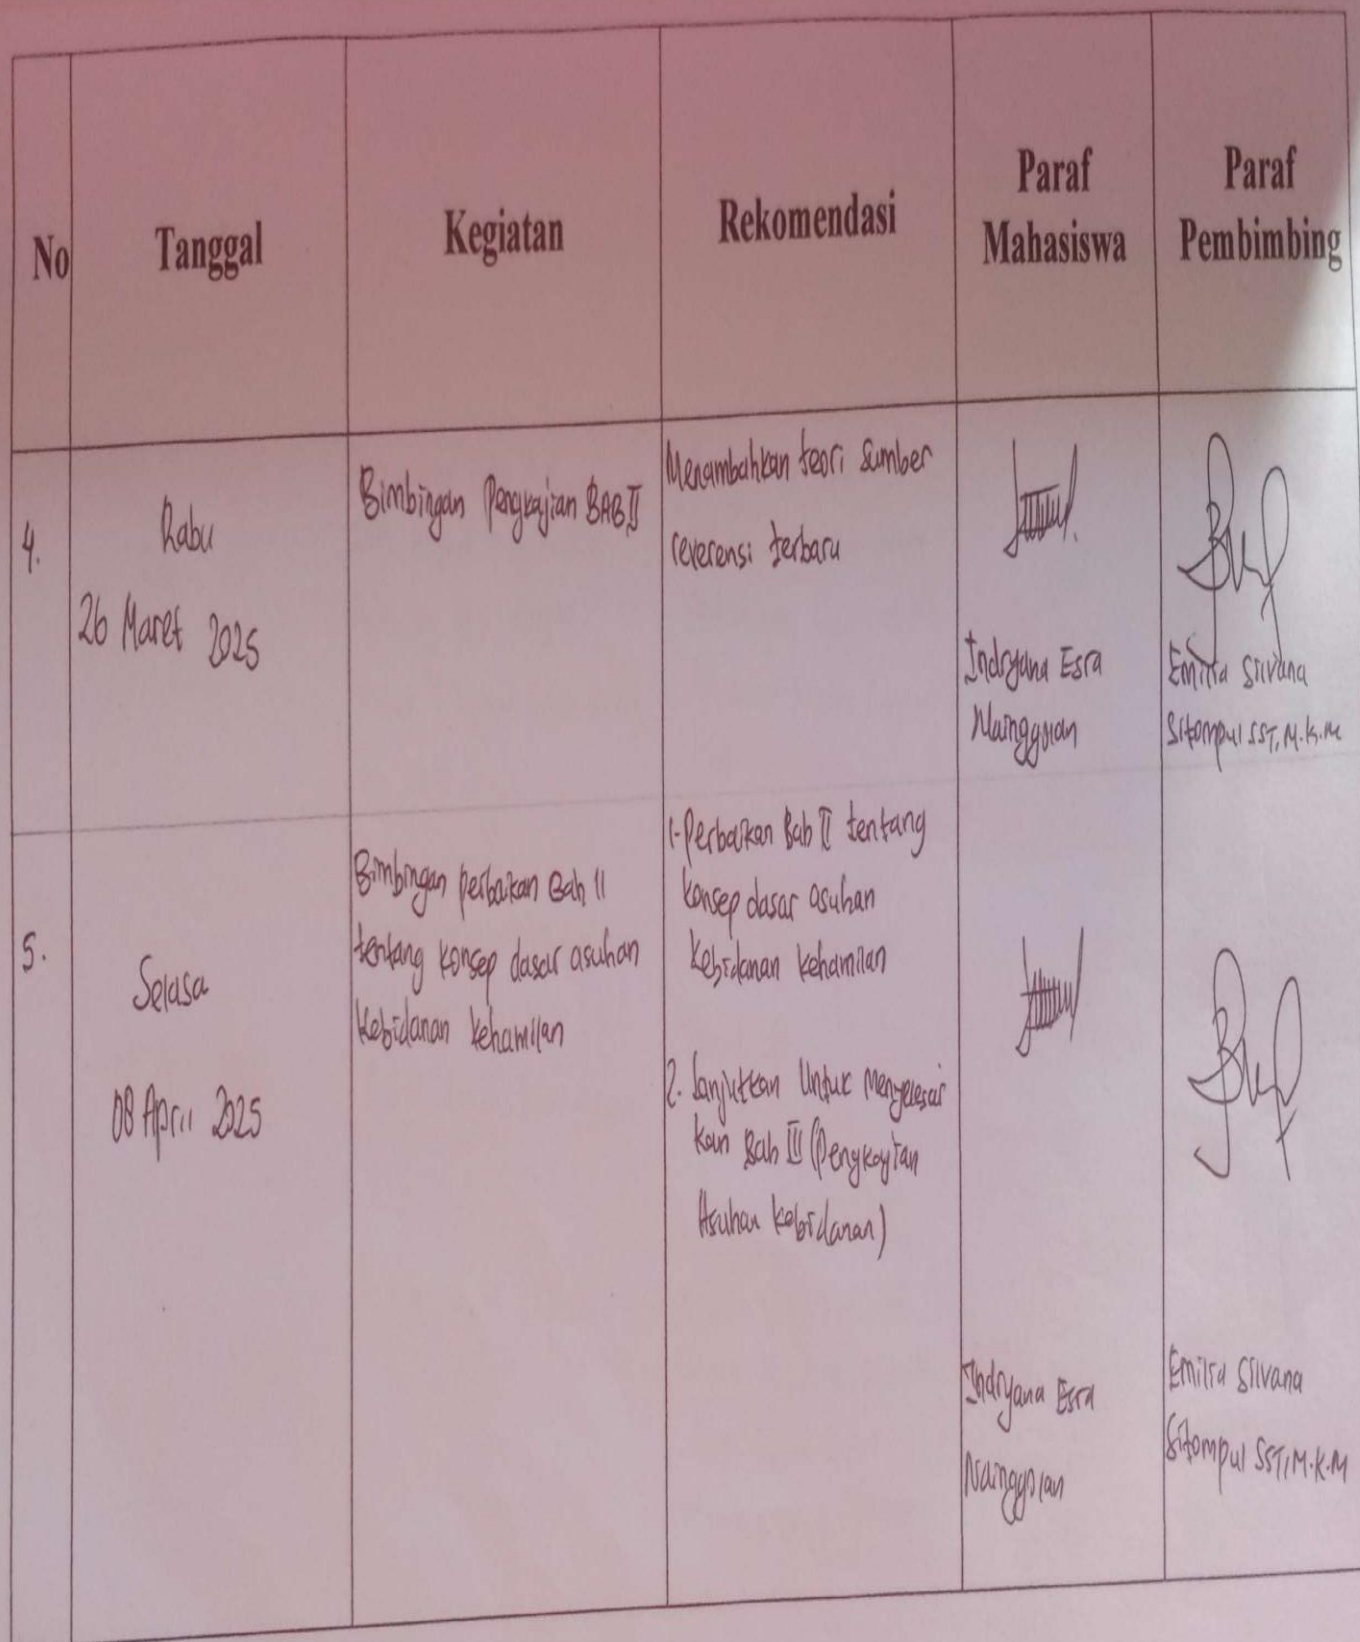 No
Tanggal
Kegiatan
Rekomendasi
Paraf
Mahasiswa
Paraf
Pembimbing
4.
Rabu
26 Maret 2025
Bimbingan Pengkajian BAB II
Menambahkan teori sumber
reverensi terbaru
Indryana Esra
Nainggolan
Emilia Silvana
Sitompul SST, M.K.M
5.
Selasa
08 April 2025
Bimbingan perbaikan Bab II
tentang konsep dasar asuhan
kebidanan kehamilan
1. Perbaikan Bab II tentang
konsep dasar asuhan
kebidanan kehamilan
2. Lanjutkan untuk menyelesai
kan Bab III (Pengkajian
Asuhan kebidanan)
Indryana Esra
Nainggolan
Emilia Silvana
Sitompul SST, M.K.M